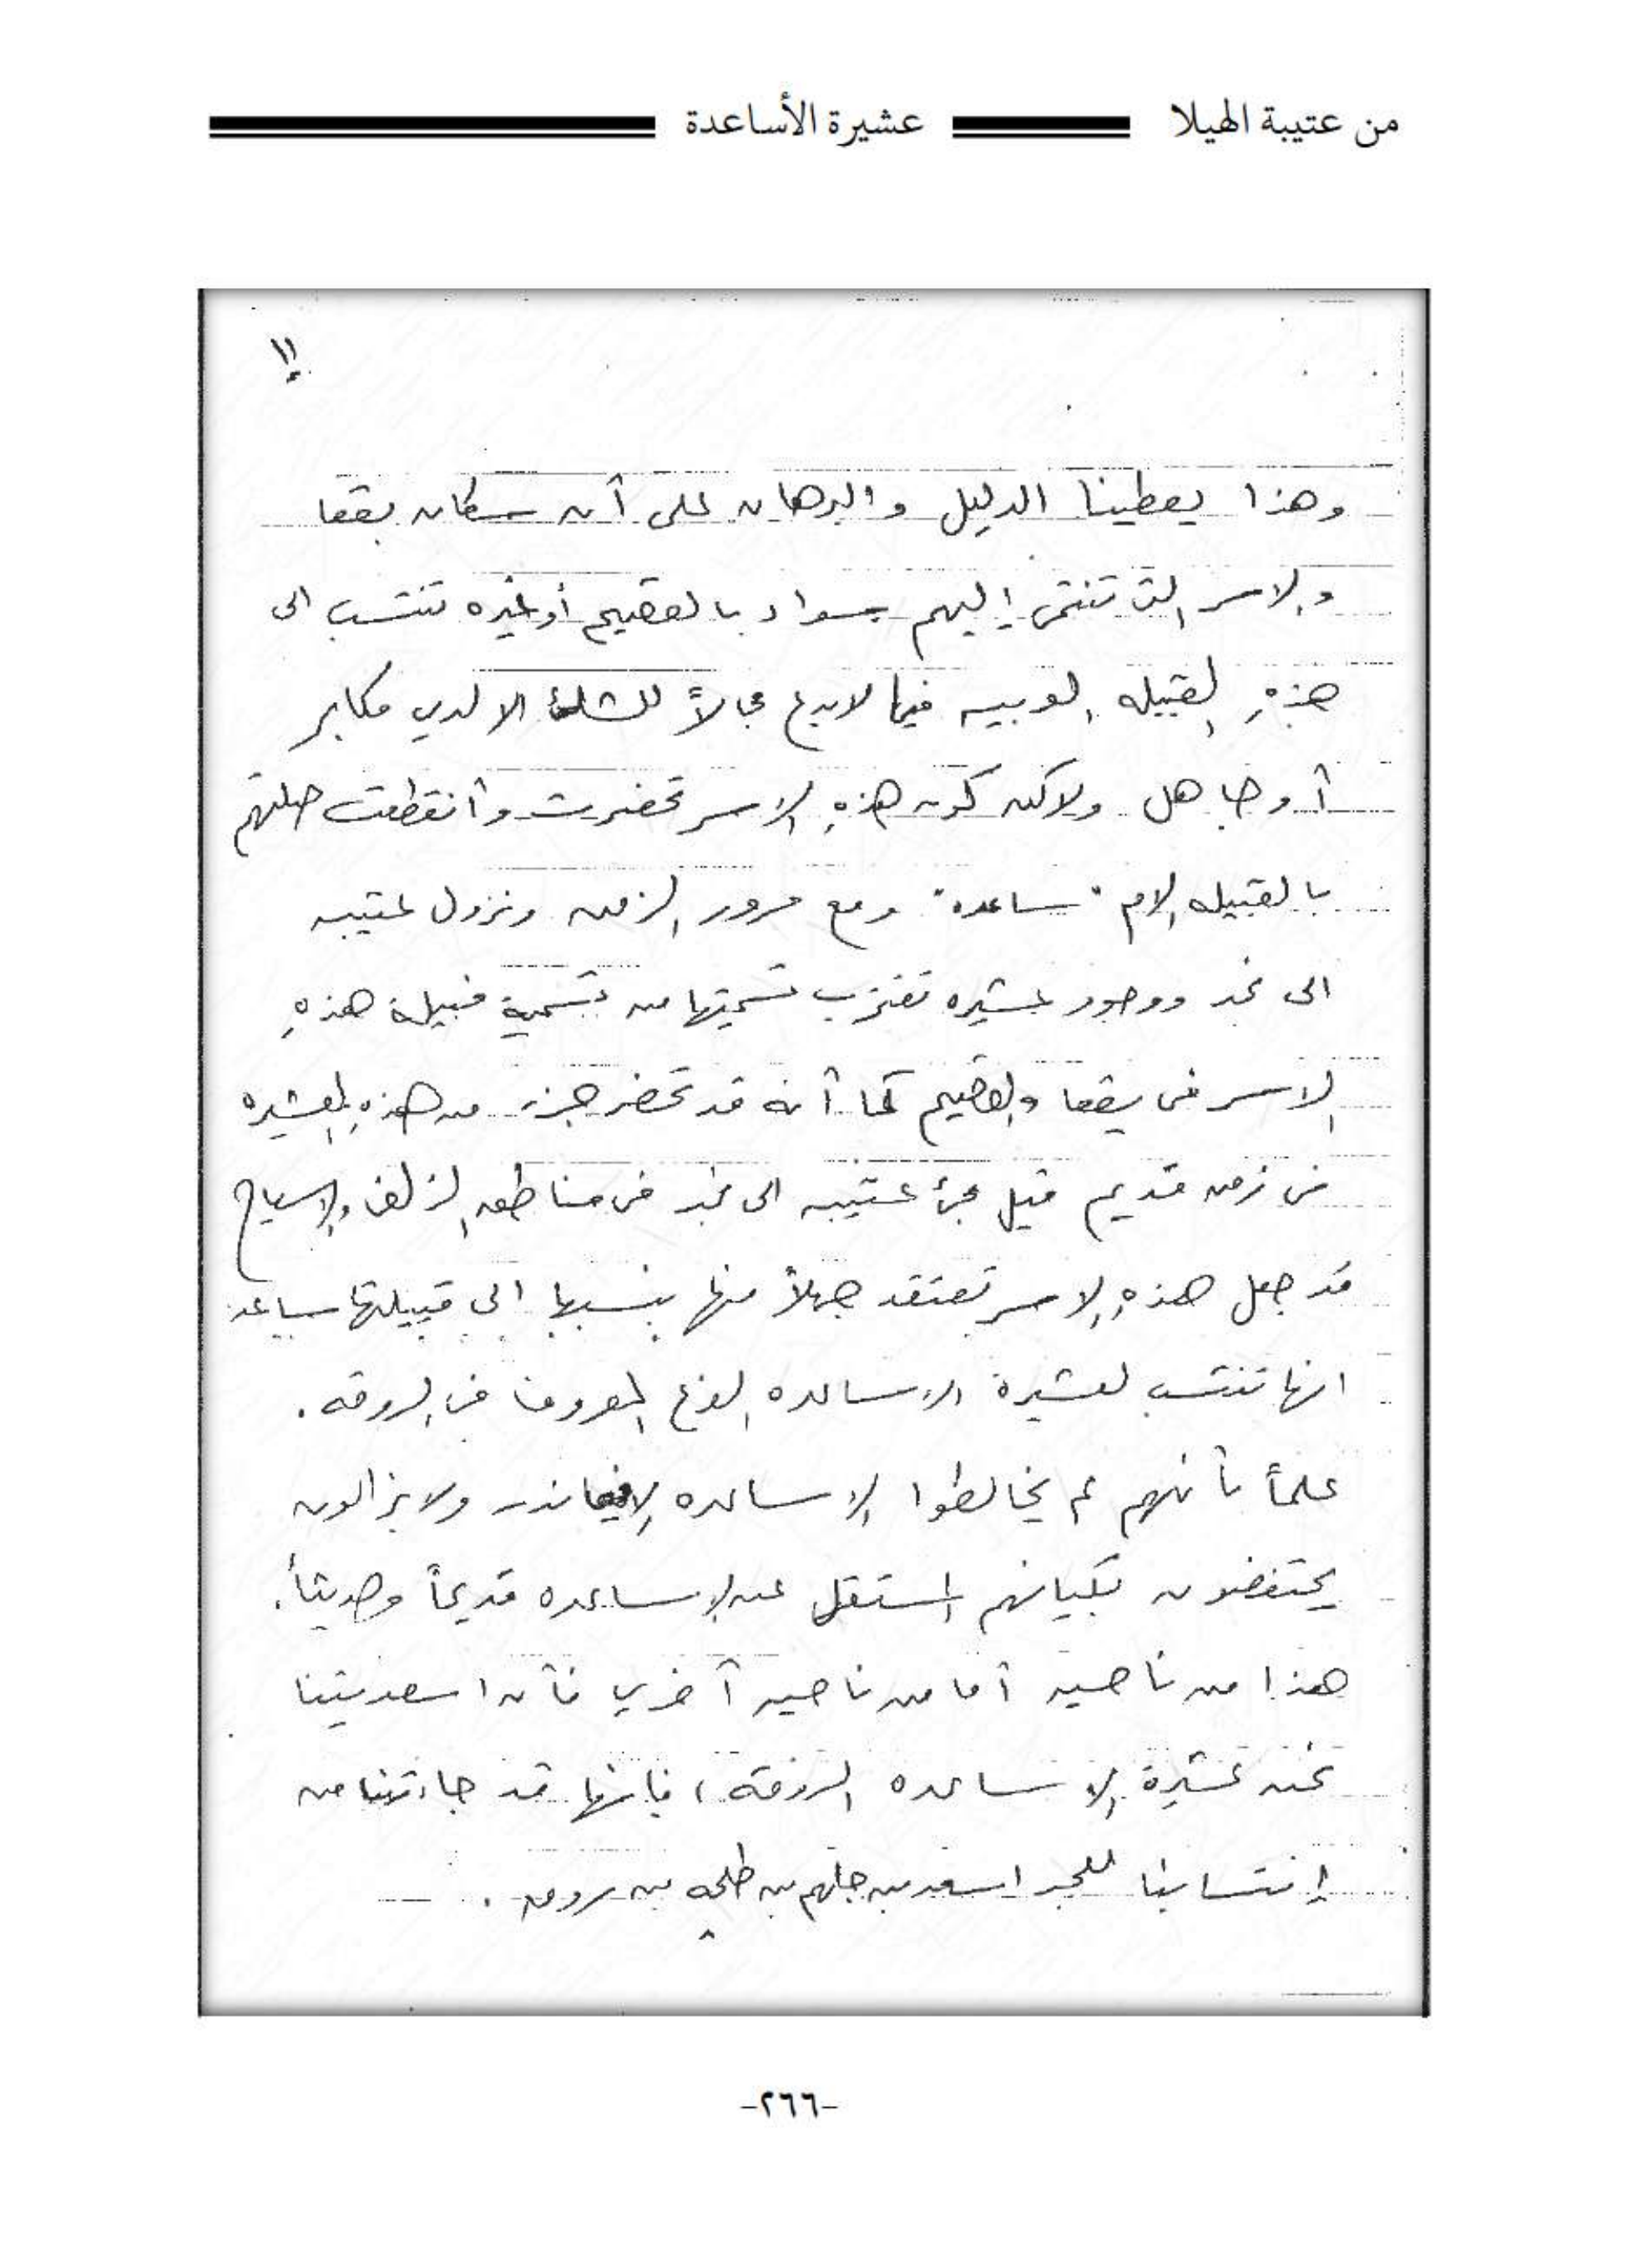 من عتيبة الهيلا عشيرة الأساعدة
١١
وهذا يعطينا الدليل والبرهان على أن سكان بقعا
والاسر التي تنتمي إليهم سواء بالقصيم أو غيره تنتسب الى
هذهِ القبيله العربيه فيما لا يدع مجالاً للشك الا لدي مكابر
أو جاهل ولاكن كون هذهِ الاسر تحضرت وأنقطعت صلتهم
بالقبيله الام "ساعده" ومع مرور الزمن ونزول عتيبه
الى نجد ووجود عشيره تقترب تسميتها من تسمية قبيلة هذهِ
الاسر في بقعا والقصيم كما أنه قد تحضر جزء من هذهِ العشيره
في زمن قديم قبل مجئ عتيبه الى نجد في مناطق الزلفي والاسياح
قد جعل هذهِ الاسر تعتقد جهلاً منها بنسبها الى قبيلتها ساعده
انها تنتسب لعشيرة الاساعده الفرع المعروف في الروقه .
علماً بأنهم لم يخالطوا الاساعده الا فيما ندر ولا يزالون
يحتفضون بكيانهم المستقل عن الاساعده قديماً وحديثاً .
هذا من ناحيه أما من ناحيه آخري فأن اسعديتنا
نحن عشيرة الاساعده الروقه ، فإنها قد جاءتنا من
إنتسابنا للجد اسعد بن جلهم بن طلحه بن روق .
-٢٦٦-